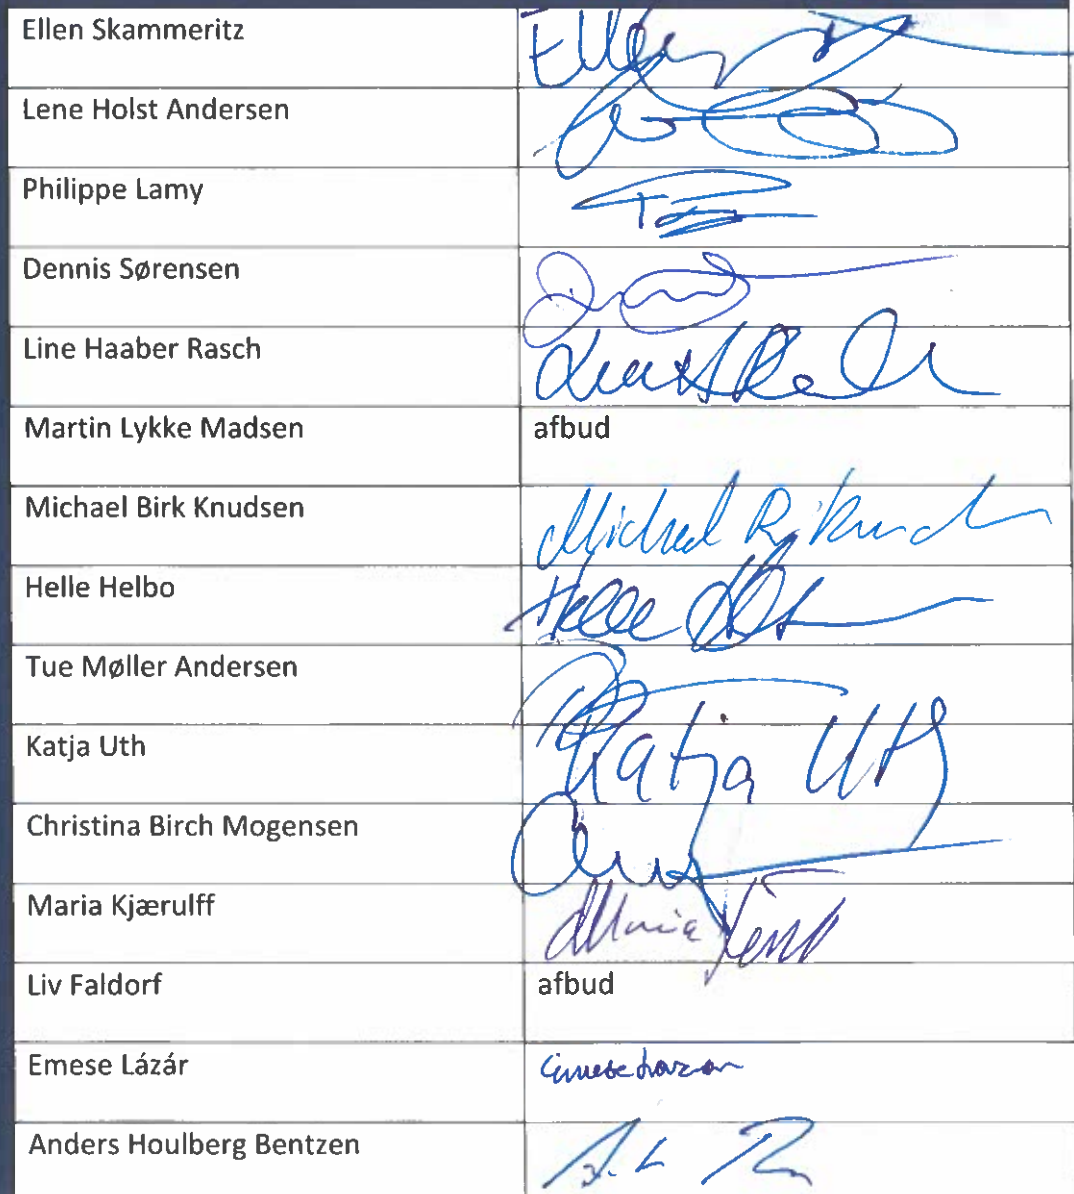 Ellen Skammeritz Ellen
Lene Holst Andersen
Philippe Lamy
Dennis Sørensen
Line Haaber Rasch
Martin Lykke Madsen afbud
Michael Birk Knudsen
Helle Helbo Helle
Tue Møller Andersen
Katja Uth Katja Uth
Christina Birch Mogensen
Maria Kjærulff Maria
Liv Faldorf afbud
Emese Lázár
Anders Houlberg Bentzen